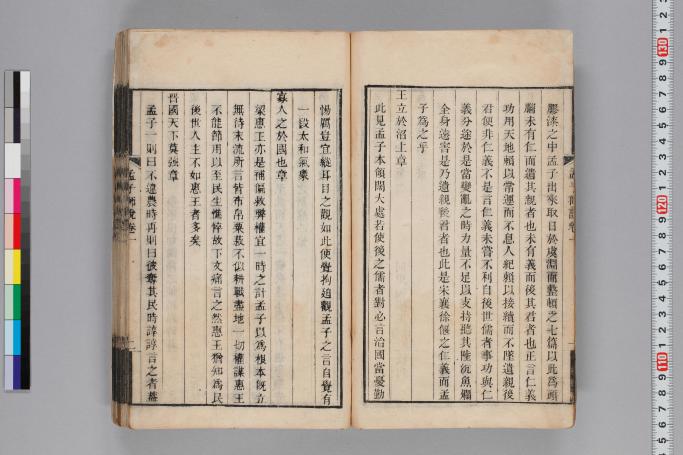 膠漆之中孟子出來取日於虞淵而整頓之七篇以此為頭
腦未有仁而遺其親者也未有義而後其君者也正言仁義
功用天地賴以常運而不息人紀賴以接續而不墜遺親後
君便非仁義不是言仁義未嘗不利自後世儒者事功與仁
義分途於是當變亂之時力量不足以支持聽其陸沉魚爛
全身遠害是乃遺親後君者也此是宋襄徐偃之仁義而孟
子為之乎
王立於沼上章
此見孟子本領闊大處若使後之儒者對必言治國當憂勤
惕厲豈宜縱耳目之觀如此使覺拘迫觀孟子之言自覺有
一段太和氣象
寡人之於國也章
梁惠王亦是補偏救弊權宜一時之計孟子以為根本旣立
無待末流所言皆布帛菽粟不似耕戰盡地一切權謀惠王
不能節用以至民生憔悴故下文痛言之然惠王猶知為民
後世人主不如惠王者多矣
晉國天下莫強章
孟子一則曰不違農時再則曰彼奪其民時諄諄言之者蓋
孟子師說卷一